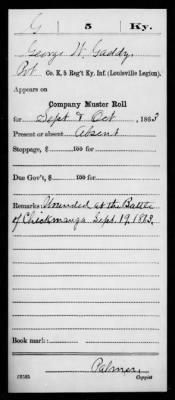 G 5 Ky.
George W. Gaddy
Pvt, Co. K, 5 Reg't Ky. Inf. (Louisville Legion).
Appears on
Company Muster Roll
for Sept & Oct, 1863
Present or absent Absent
Stoppage, $ 100 for
Due Gov't, $ 100 for
Remarks: Wounded at the Battle
of Chickmauga Sept. 19, 1863.
Book mark:
Palmer,
(858b) Copyist